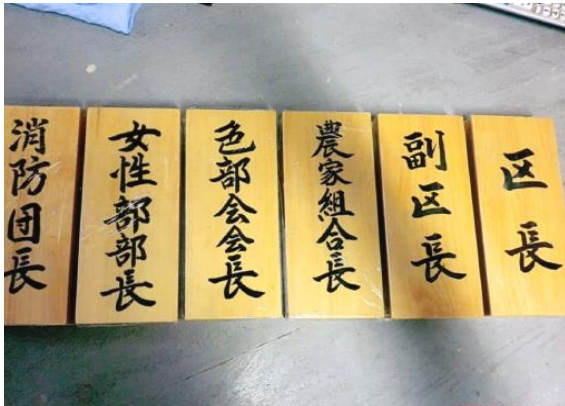 区長
副区長
農家組合長
色部会会長
女性部部長
消防団長